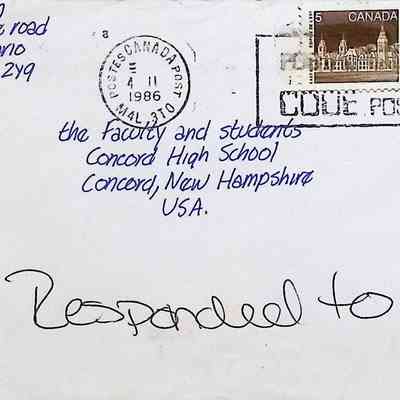 road
2Y9
8
POSTES CANADA POST
4 II
1986
M4L 3T0
5 CANADA
CODE POS
the Faculty and students
Concord High School
Concord, New Hampshire
USA.
Responded to